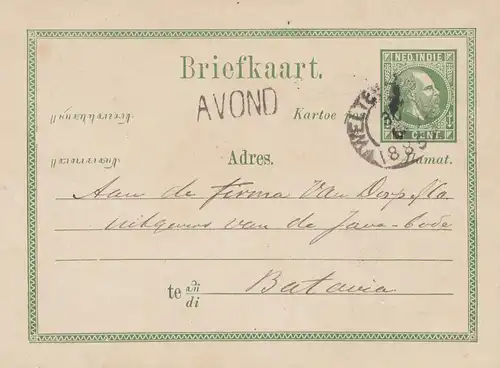 NED. INDIE
Briefkaart.
AVOND
Kartoe
CENT.
WELTE
1885
Adres.
Ḥamat.
Aan de firma Van Dorp & Co.
uitgevers van de Java-bode
te
di
Batavia